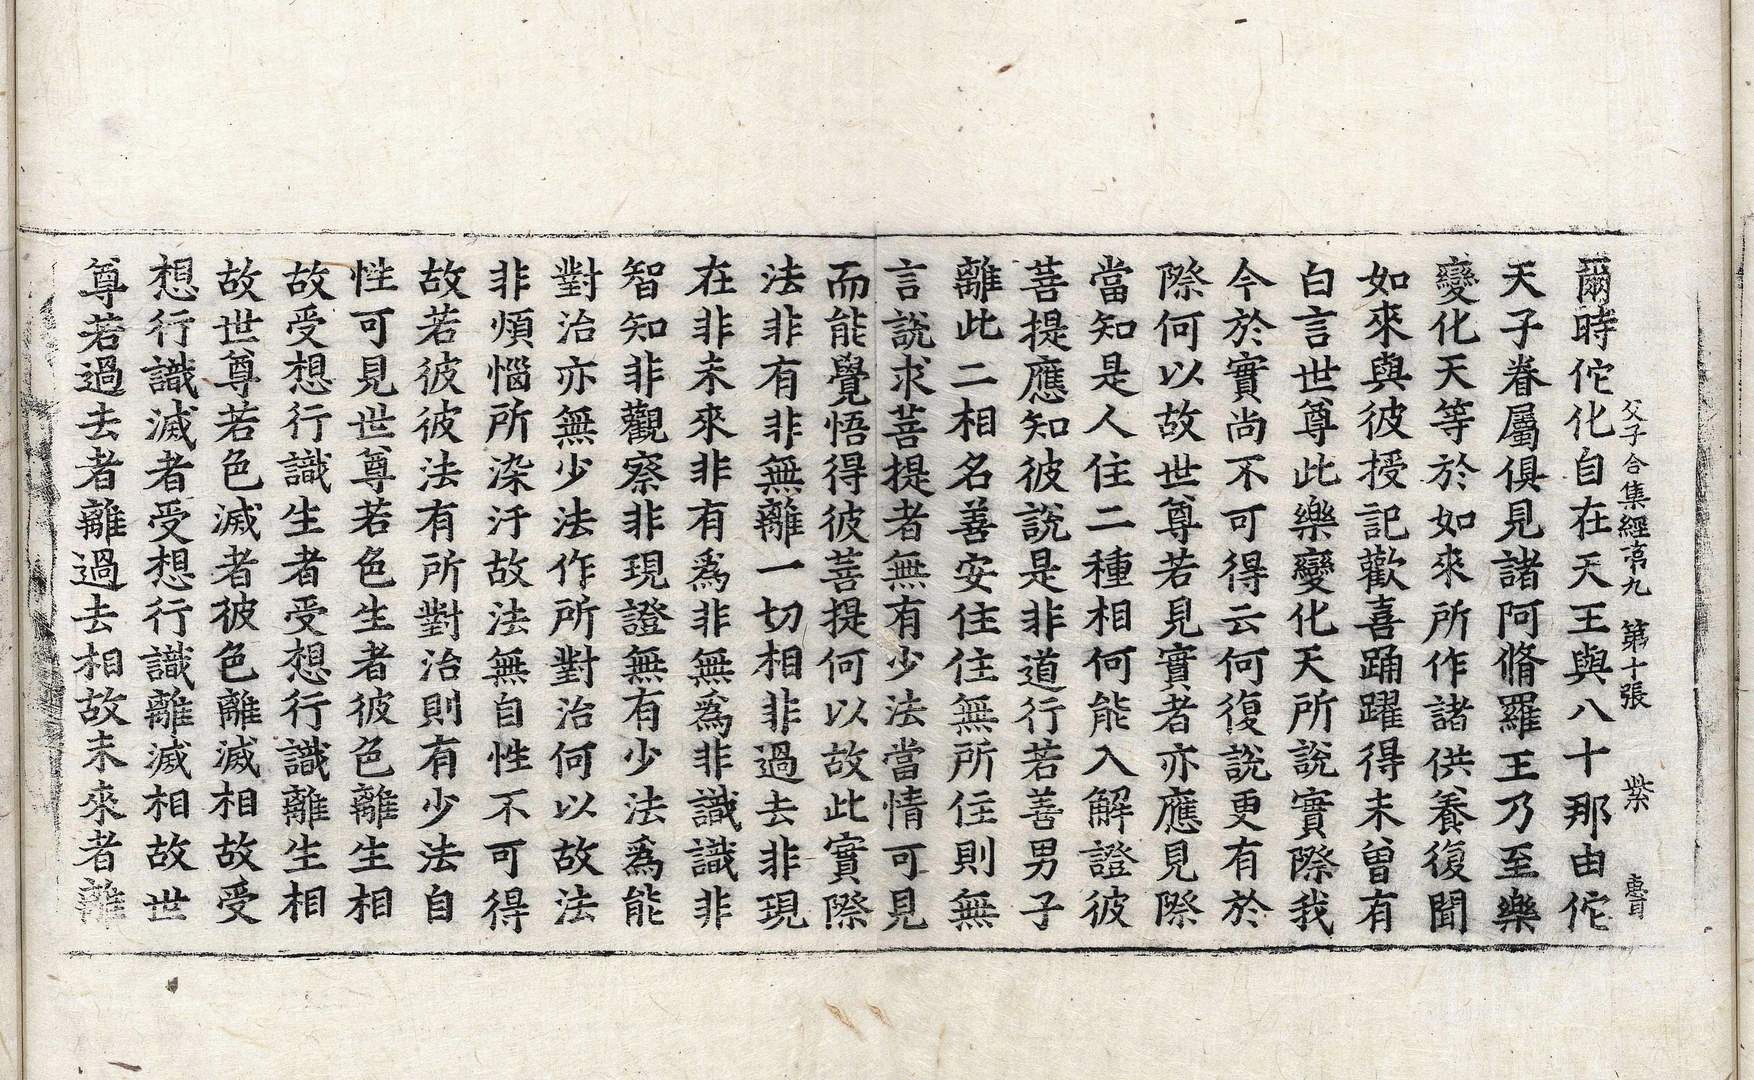 父子合集經第九 第十張 紫
爾時佗化自在天王與八十那由佗
天子眷屬俱見諸阿脩羅王乃至樂
變化天等於如來所作諸供養復聞
如來與彼授記歡喜踊躍得未曾有
白言世尊此樂變化天所說實際我
今於實尚不可得云何復說更有於
際何以故世尊若見實者亦應見際
當知是人住二種相何能入解證彼
菩提應知彼說是非道行若善男子
離此二相名善安住住無所住則無
言說求菩提者無有少法當情可見
而能覺悟得彼菩提何以故此實際
法非有非無離一切相非過去非現
在非未來非有為非無為非識識非
智知非觀察非現證無有少法為能
對治亦無少法作所對治何以故法
非煩惱所染汙故法無自性不可得
故若彼彼法有所對治則有少法自
性可見世尊若色生者彼色離生相
故受想行識生者受想行識離生相
故世尊若色滅者彼色離滅相故受
想行識滅者受想行識離滅相故世
尊若過去者離過去相故未來者離